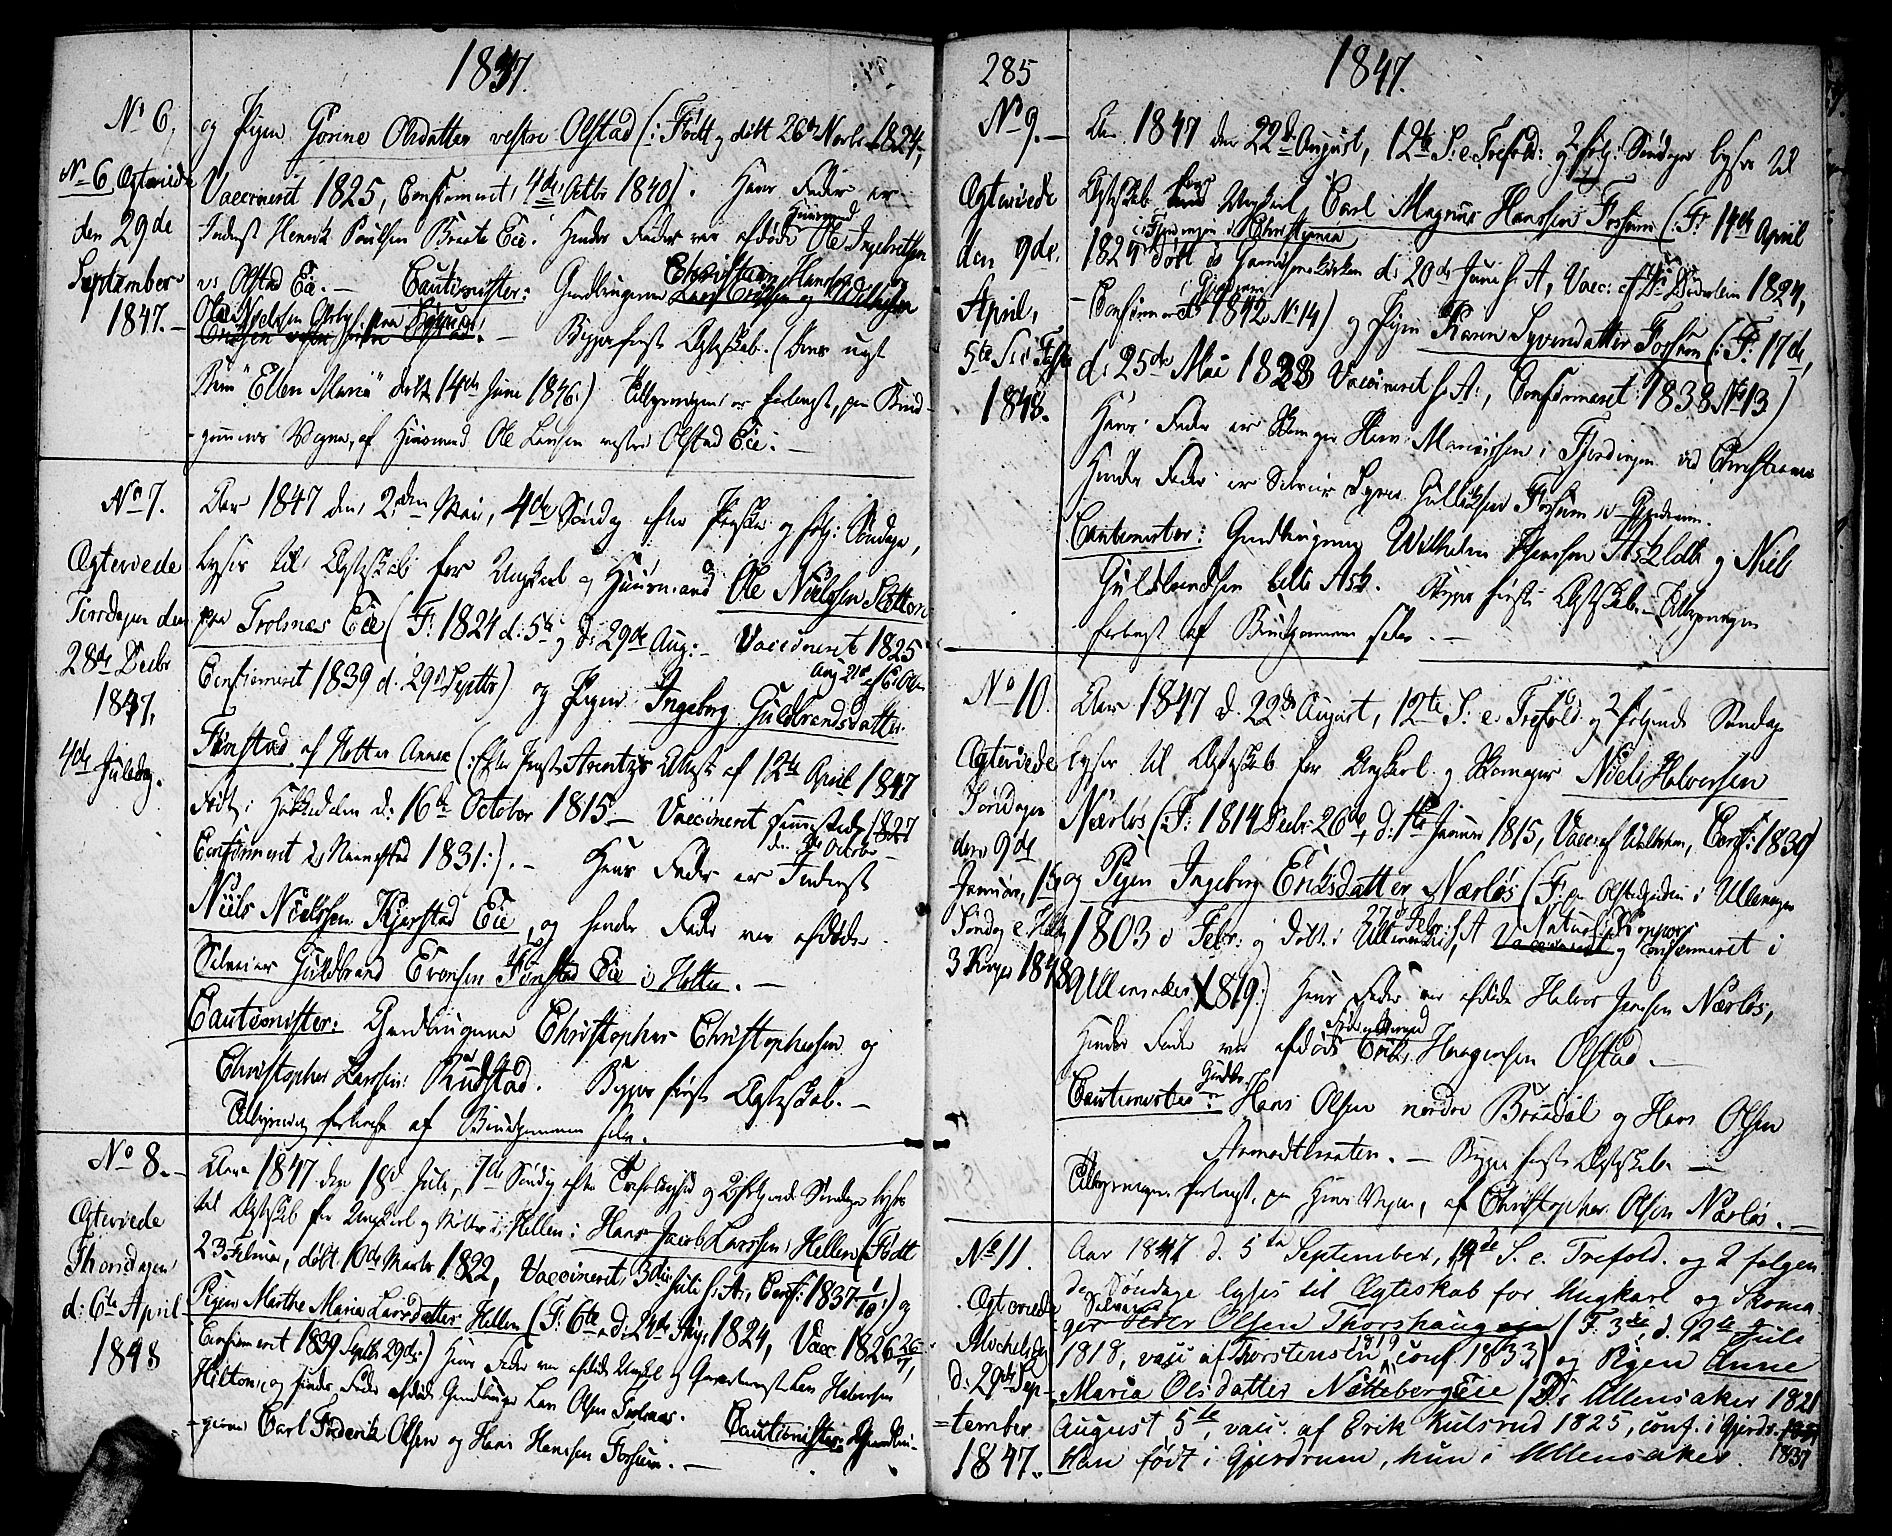 1847.
No 6,
og Pigen Gorine Olsdatter vestre Olstad (: Født og døbt 26de Novbr 1824,
No 6 Egteviede
Vaccineret 1825, Confirmeret 4de Octbr 1840). Hans Fader er
den 29de
Inderst Henrik Poulsen Braate Eie. Hendes Fader var afdøde Huusmand Ole Ingebretsen
September
v: Olstad Eie. — Cautionister: Gaardbrugerne Christian Hansen og
1847. —
Ole Nielsen
Begges første Egteskab. (Have uægt
Barn "Ellen Maria" døbt 14de Juni 1846.) Tillysningen er forlangt, paa Brud-
-gommens Vegne, af Huusmand Ole Larsen vestre Olstad Eie. —
No 7.
Aar 1847 den 2den Mai, 4de Søndag efter Paaske og følg: Søndage,
Egteviede
lyses til Egteskab for Ungkarl og Huusmand Ole Nielsen Slotten
Tirsdagen den
paa Trolnæs Eie (F: 1824 d: 5te og D: 29de Aug: — Vaccineret 1825
28de Decbr
Confirmeret 1839 d. 29de Septbr) og Pigen Ingeborg Guldbrandsdatter
1847,
4de Juledag.
Finstad af Holter Annex (: Efter Prest Arentz's Attest af 12te April 1847
Født i Hakkedalen d: 16de October 1815 — Vaccineret sammesteds 1827
Confirmeret i Nannestad 1831:). — Hans Fader er Inderst
den 2de Octobr
Niels Nielssen Kjerstad Eie, og hendes Fader var afdøde
Selveier Guldbrand Evensen Finstad Eie i Holter. —
Cautionister: Gaardbrugerne Christopher Christophersen og
Christopher Larssen Rudstad. Begges første Egteskab. —
Tillysning forlangt af Brudgommen selv.
No 8. —
Aar 1847 den 18de Juli, 7de Søndag efter Trefoldighed og 2 følgende Søndage lyses
Egteviede
til Egteskab for Ungkarl og Møller i Hellen: Hans Jacob Larssen Hellen (Født
Thorsdagen
23 Februar, døbt 10de Marts 1822, Vaccineret 3die Juli s. A., Conf: 1837 1/10:) og
d: 6te April
Pigen Marthe Maria Larsdatter Hellen (F: 6te, d: 24de Aug: 1824, Vacc. 1826 26/7,
1848
Confirmeret 1839 Septbr 29de:) Hans Fader var afdøde
Lars Halvorsen
Hilton, og hendes Fader afdøde Gaardbruger Lars Olsen Trolnæs. Cautionister: Gaardbru-
-gerne Carl Frederik Olsen og Hans Hanssen Fossum. —
285
1847.
No 9. —
Aar 1847 den 22de August, 12te S: e. Trefold: og 2 følg: Søndager lyses til
Egteviede
Egteskab for Ungkarl Carl Magnus Hanssen Fossum (: F: 14de April
den 9de
1824 i Fjerdingen i Christiania døbt i Garnisonskirken d: 20de Juni s. A, Vacc: af 1824,
April,
Confirmeret i Gjerdrum 1842 No 14) og Pigen Karen Syversdatter Fossum (: F: 17de,
5te Sø: i Faste
d: 25de Mai 1823 Vaccineret s. A:, Confirmeret 1838 No 13)
1848.
Hans Fader er Skomager Hans Mariussen i Fjerdingen ved Christiania
Hendes Fader er Selveier Syver Gulliksen Fossum i Gjerdrum.
Cautionister: Gaardbrugerne Wilhelm Hanssen Ask lille og Niels
Guldbrandsen lille Ask. Begges første Egteskab. — Tillysningen
forlangt af Brudgommen selv. —
No 10.
Aar 1847 d. 22de August, 12te S: e. Trefold og 2 følgende Søndage
Egteviede
lyses til Egteskab for Ungkarl og Skomager Niels Halvorsen
Søndagen
Nærløs (F: 1814 Decbr 26de, d: 1ste Januar 1815, Vacc: af Wilhelm, Conf: 1830)
den 9de
Januar, 1ste
og Pigen Ingeborg Eriksdatter Nærløs (F: paa Olstadgaden i Ullensager
Søndag e. Hellig
1803 i Febr: og døbt i Ullensaker 27de Febr: s. A Naturlige Kopper og Confirmeret i
3 Konger 1848
Ullensaker 1819:) Hans Fader var afdøde Halvor Jensen Nærløs,
Hendes Fader var afdøde Erik Haagensen Olstad. —
Cautionister: Gaardbr: Hans Olsen nordre Braadal og Hans Olsen
Aamodtbraaten. — Begges første Egteskab. —
Tillysningen forlangt, paa Hans Vegne, af Christopher Olsen Nærløs. —
No 11.
Aar 1847 d. 5te September, 14de S. e. Trefold. og 2 følgen
Egteviede
de Søndage lyses til Egteskab for Ungkarl og Skoma
Mickelsdag
ger Selveier Peder Olsen Thorshaug (F: 3die, d. 12te Juli
d: 29de Sep-
1818, vacc. af Thorstensen 1819, conf. 1833) og Pigen Anne
=tember
Maria Olsdatter Nøttebergeie (F. i Ullensaker 1821
1847. —
August 5te, vacc. af Erik Kulsrud 1825, conf. i Gjerdr. 1837
Han født i Gjerdrum, hun i Ullensaker.